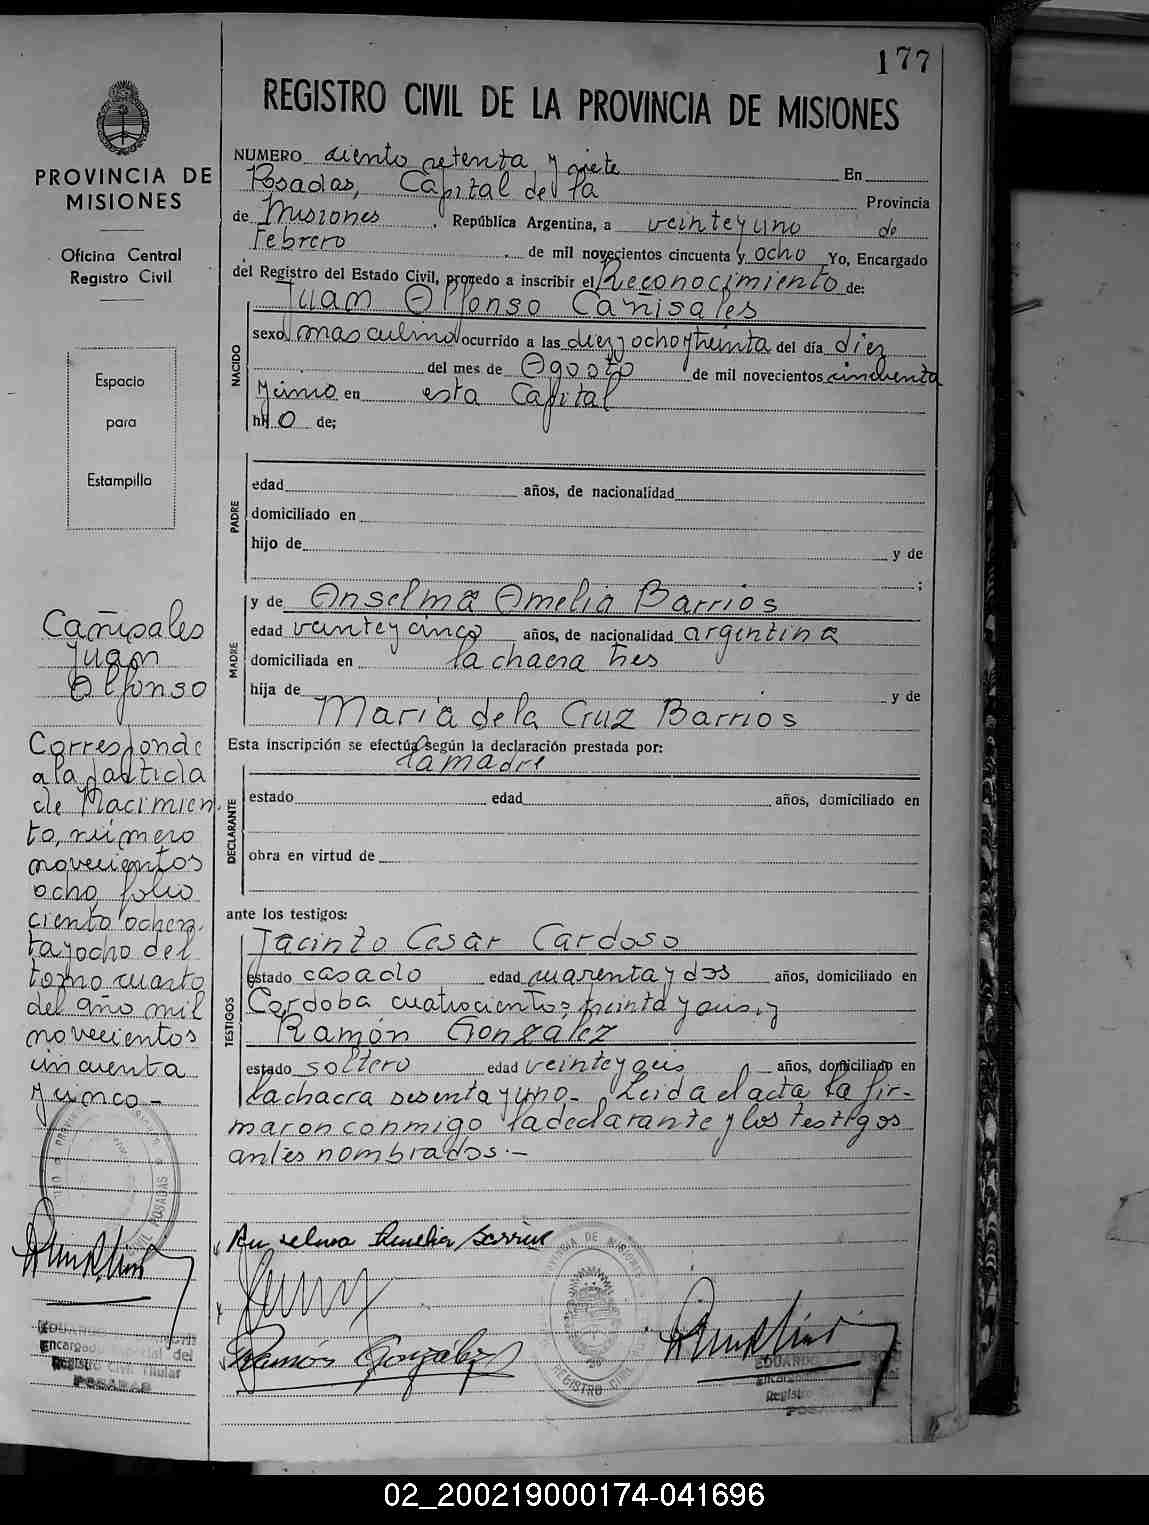 177
REGISTRO CIVIL DE LA PROVINCIA DE MISIONES
NUMERO ciento setenta y siete En
Posadas, Capital de la Provincia
de Misiones, República Argentina, a veinteyuno de
Febrero de mil novecientos cincuenta y ocho Yo, Encargado
del Registro del Estado Civil, procedo a inscribir el Reconocimiento de:
Juan Alfonso Cañisales
NACIDO
sexo masculino ocurrido a las diez y ocho y treinta del día diez
del mes de Agosto de mil novecientos cincuenta
y cinco en esta Capital
hij o de;
PADRE
edad años, de nacionalidad
domiciliado en
hijo de y de
;
MADRE
y de Anselma Amelia Barrios
edad veinteycinco años, de nacionalidad argentina
domiciliada en la chacra tres
hija de y de
Maria de la Cruz Barrios
Esta inscripción se efectúa según la declaración prestada por:
la madre
DECLARANTE
estado edad años, domiciliado en
obra en virtud de
ante los testigos:
TESTIGOS
Jacinto Cesar Cardoso
estado casado edad cuarenta y dos años, domiciliado en
Cordoba cuatrocientos treinta y seis, y
Ramón González
estado soltero edad veinteyseis años, domiciliado en
la chacra sesenta y uno- Leida el acta la fir-
maron conmigo la declarante y los testigos
antes nombrados.-
Anselma Amelia Barrios
Ramón González
PROVINCIA DE MISIONES
REGISTRO CIVIL
PROVINCIA DE
MISIONES
Oficina Central
Registro Civil
Espacio
para
Estampilla
Cañisales
Juan
Alfonso
Corresponde
a la partida
de Nacimien
to, número
novecientos
ocho, folio
ciento ochen-
ta y ocho del
tomo cuarto
del año mil
novecientos
cincuenta
y cinco -
POSADAS
EDUARDO
Encargado Especial del
Registro Civil Titular
POSADAS
EDUARDO
Registro
POSADAS
02_200219000174-041696